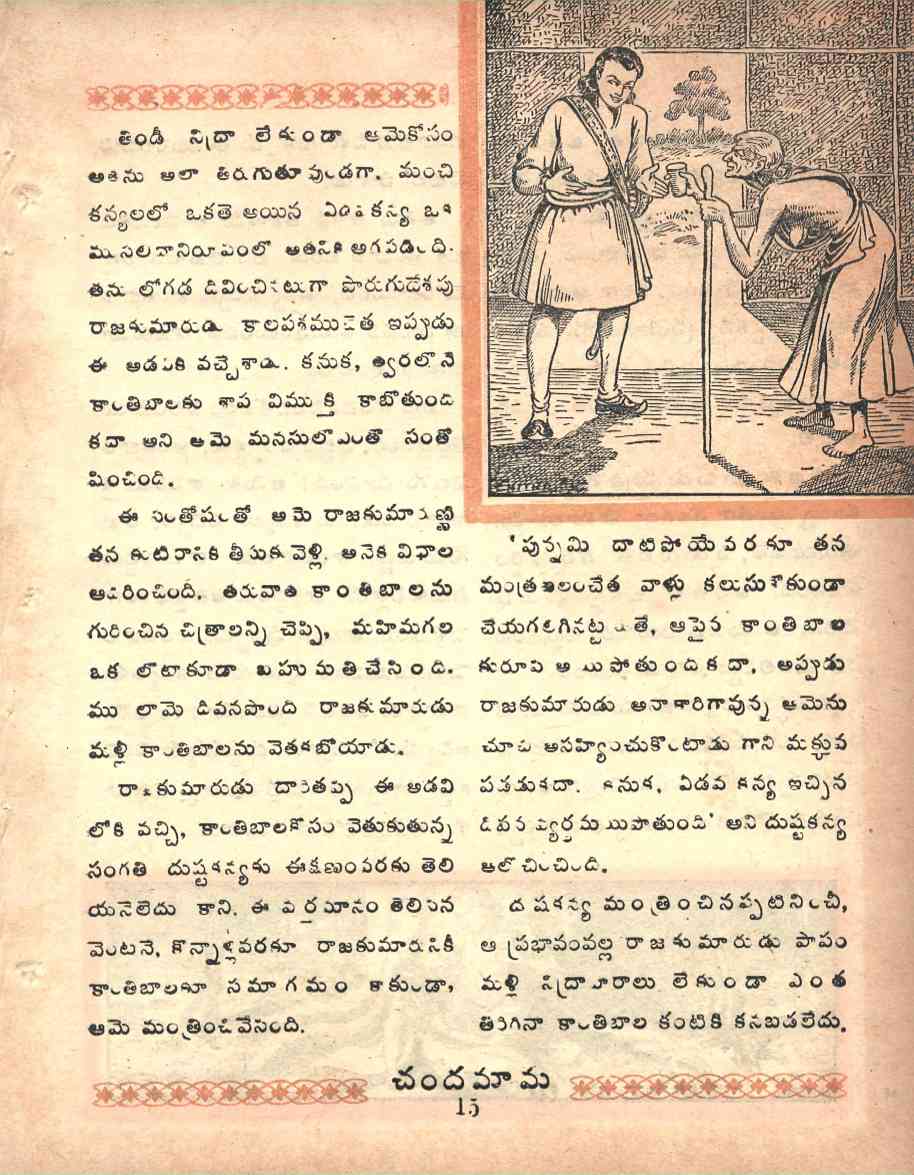 తిండీ నిద్రా లేకుండా ఆమెకోసం
అతను అలా తిరుగుతూవుండగా, మంచి
కన్యలలో ఒకతె అయిన ఏడవకన్య ఒక
ముసలవానిరూపంలో అతనికి అగపడింది.
తను లోగడ దీవించినట్టుగా పొరుగుదేశపు
రాజకుమారుడు కాలవశముచేత ఇప్పుడు
ఈ అడవికి వచ్చేశాడు. కనుక, త్వరలోనే
కాంతిబాలకు శాప విముక్తి కాబోతుంది
కదా అని ఆమె మనసులో ఎంతో సంతో
షించింది.
ఈ సంతోషంతో ఆమె రాజకుమారుణ్ణి
తన కుటీరానికి తీసుకువెళ్లి, అనేక విధాల
ఆదరించింది. తరువాత కాంతిబాలను
గురించిన చిత్రాలన్ని చెప్పి, మహిమగల
ఒక లోటాకూడా బహుమతిచేసింది.
ముసలామె దీవనపొంది రాజకుమారుడు
మళ్లీ కాంతిబాలను వెతకబోయాడు.
రాజకుమారుడు దారితప్పి ఈ అడవి
లోకి వచ్చి, కాంతిబాలకోసం వెతుకుతున్న
సంగతి దుష్టకన్యకు ఈక్షణంవరకు తెలి
యనేలేదు కాని. ఈ వర్తమానం తెలిసిన
వెంటనే, కొన్నాళ్లవరకూ రాజకుమారునికీ
కాంతిబాలకూ సమాగమం కాకుండా,
ఆమె మంత్రించివేసింది.
'పున్నమి దాటిపోయేవరకూ తన
మంత్రబలంచేత వాళ్లు కలుసుకోకుండా
చేయగలిగినట్టయితే, ఆపైన కాంతిబాల
కురూపి అయిపోతుందికదా, అప్పుడు
రాజకుమారుడు అనాకారిగావున్న ఆమెను
చూచి అసహ్యించుకొంటాడు గాని మక్కువ
పడడుకదా. కనుక, ఏడవ కన్య ఇచ్చిన
దీవన వ్యర్థమయిపోతుంది' అని దుష్టకన్య
ఆలోచించింది.
దుష్టకన్య మంత్రించినప్పటినించీ,
ఆ ప్రభావంవల్ల రాజకుమారుడు పాపం
మళ్లీ నిద్రాహారాలు లేకుండా ఎంత
తిరిగినా కాంతిబాల కంటికి కనబడలేదు.
చందమామ
15